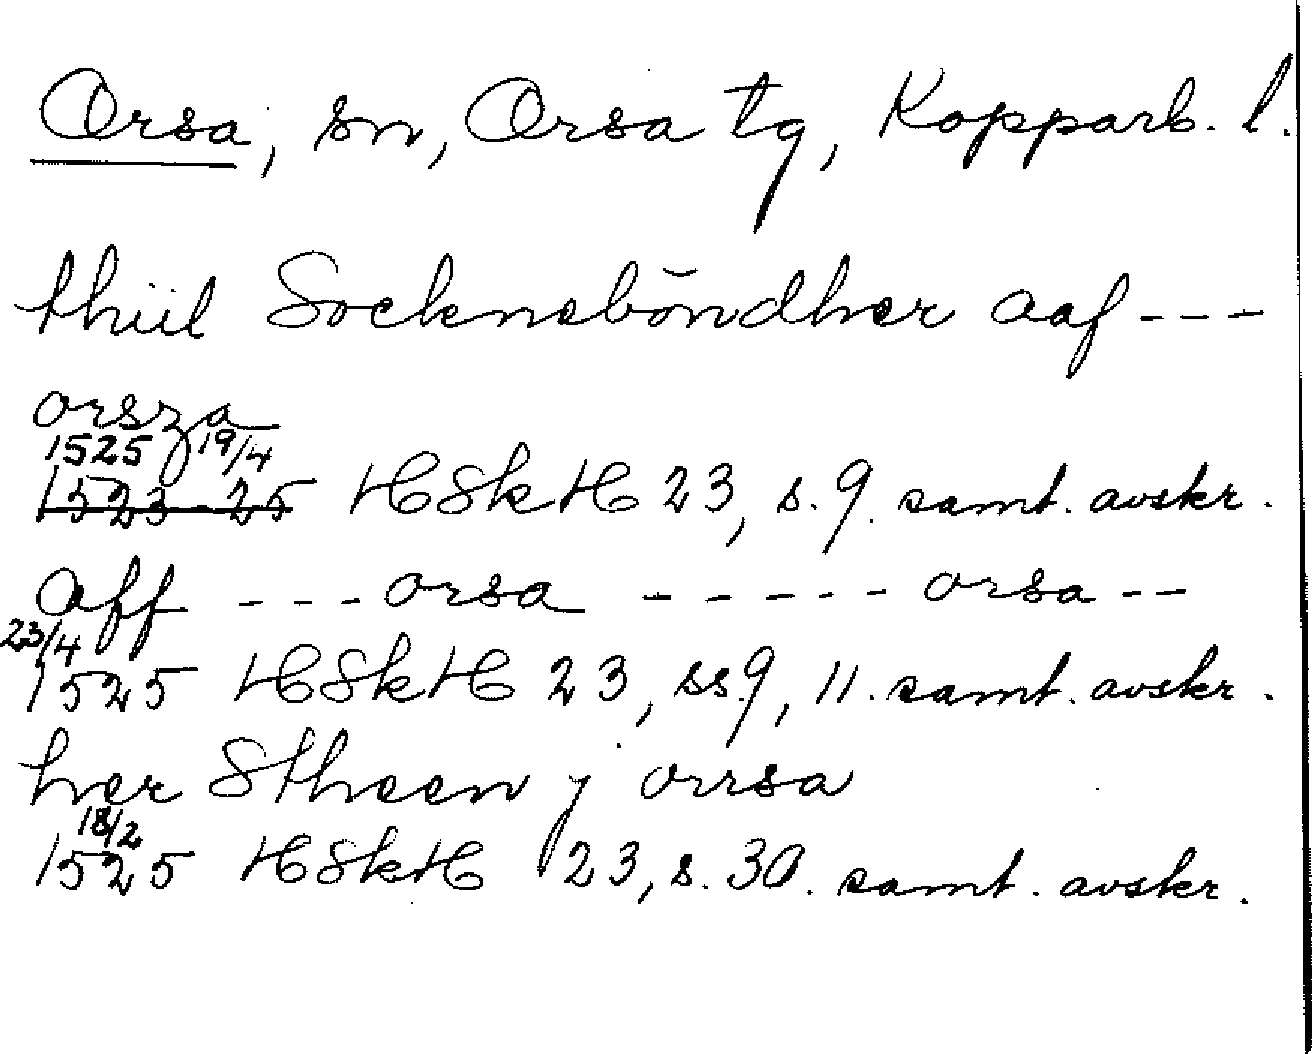 Orsa, sn, Orsa tg, Kopparb. l.
thiil Socknebōndher aaf ---
orsza
1525 19/4
1523-25 HSkH 23, s. 9. samt. avskr.
Aff --- orsa ----- orsa --
23/4
1525 HSkH 23, ss. 9, 11. samt. avskr.
her Stheen j orrsa
18/2
1525 HSkH 23, s. 30. samt. avskr.